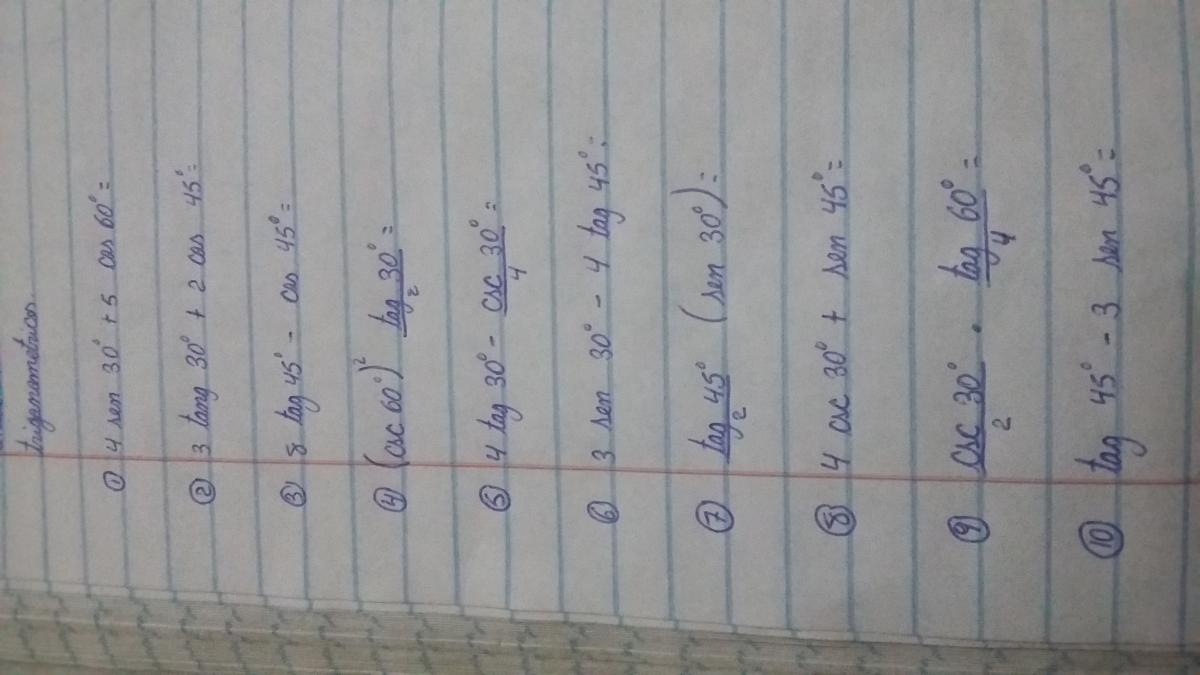 trigonometricas.
① 4 sen 30° + 5 cos 60° =
② 3 tang 30° + 2 cos 45° =
③ 8 tag 45° - cos 45° =
④ (csc 60°)² tag 30°/2 =
⑤ 4 tag 30° - csc 30°/4 =
⑥ 3 sen 30° - 4 tag 45° =
⑦ tag 45°/2 (sen 30°) =
⑧ 4 csc 30° + sen 45° =
⑨ csc 30°/2 . tag 60°/4 =
⑩ tag 45° - 3 sen 45° =